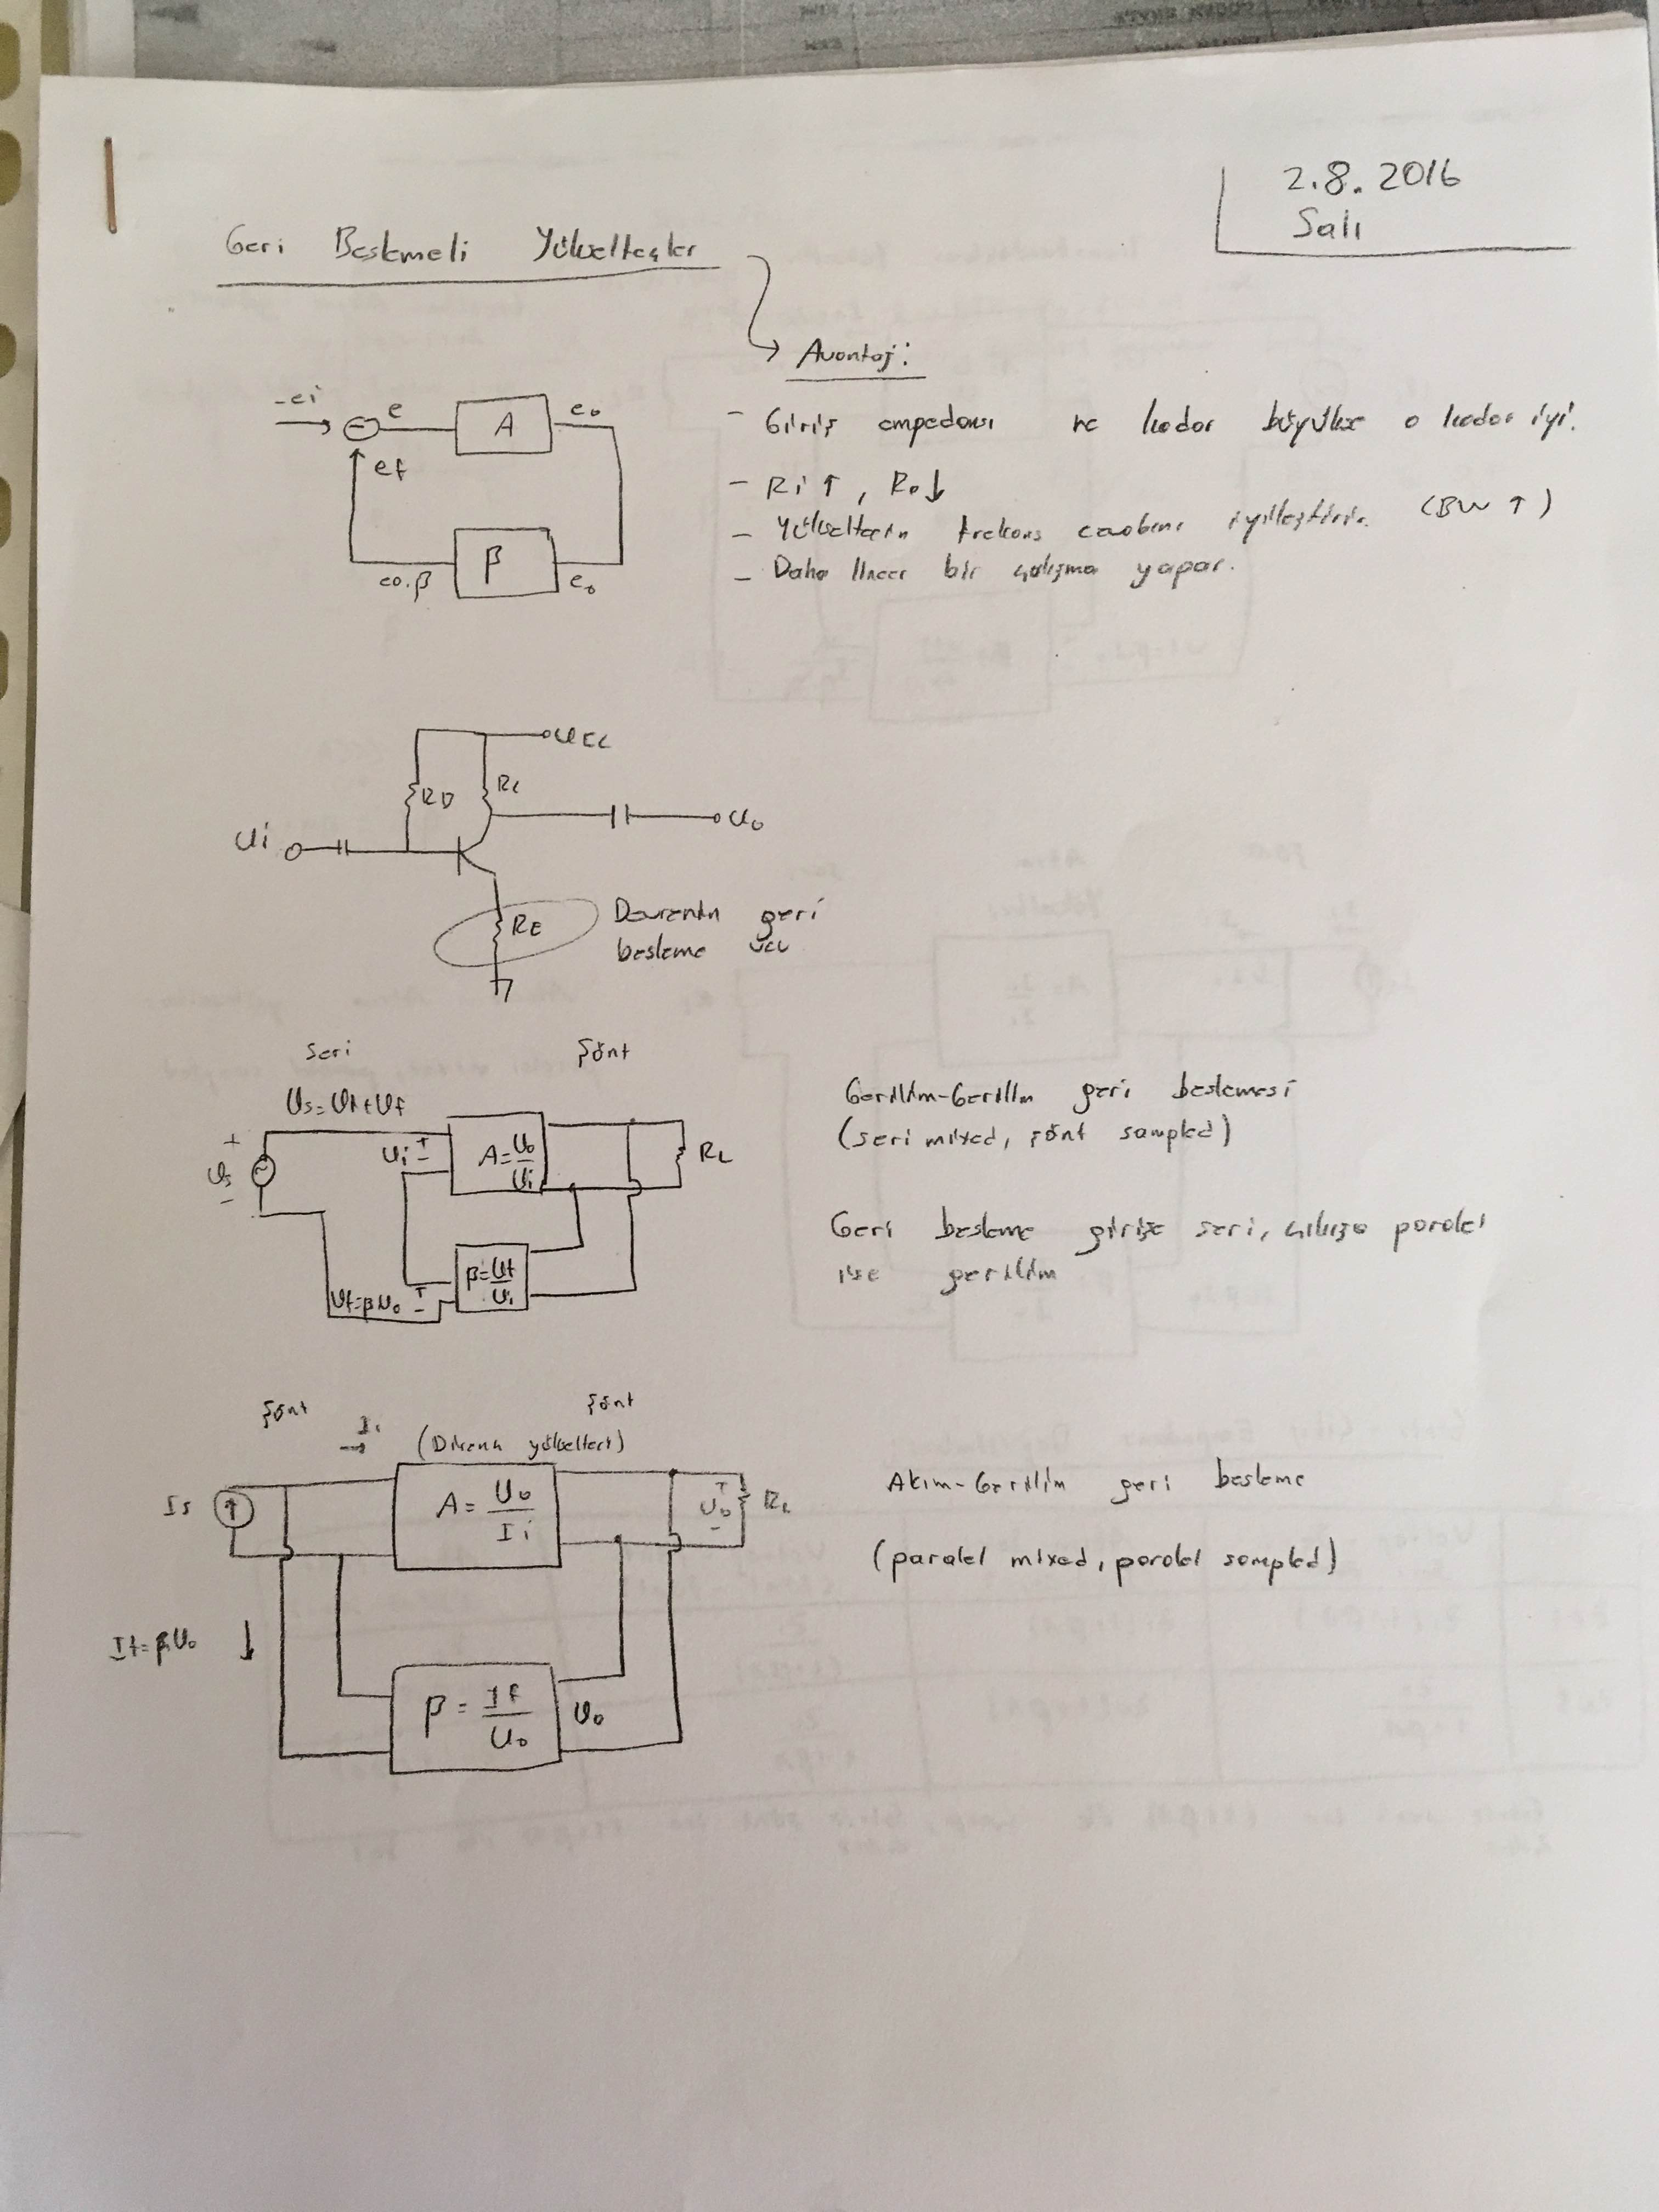 2.8.2016
Salı
Geri Beslemeli Yükselteçler
Avantaj:
-ei
e
A
eo
ef
β
eo.β
eo
- Giriş empedansı ne kadar büyükse o kadar iyi.
- Ri↑, Ro↓
- Yükseltecin frekans cevabını iyileştirir. (BW ↑)
- Daha lineer bir çalışma yapar.
RB
RC
Ui
Uo
RE
Devrenin geri
besleme ucu
Seri
Şönt
Us=Ui+Uf
+
Us
-
Ui + -
A=Uo/Ui
RL
β=Uf/Ui
Uf=βUo + -
Gerilim-Gerilim geri beslemesi
(seri mixed, şönt sampled)
Geri besleme girişe seri, çıkışa paralel
ise gerilim
Şönt
Şönt
Ii
(Direnç yükselteci)
Is
A=Uo/Ii
+
Uo
-
RL
If=βUo ↓
β=If/Uo
Uo
Akım-Gerilim geri besleme
(paralel mixed, paralel sampled)